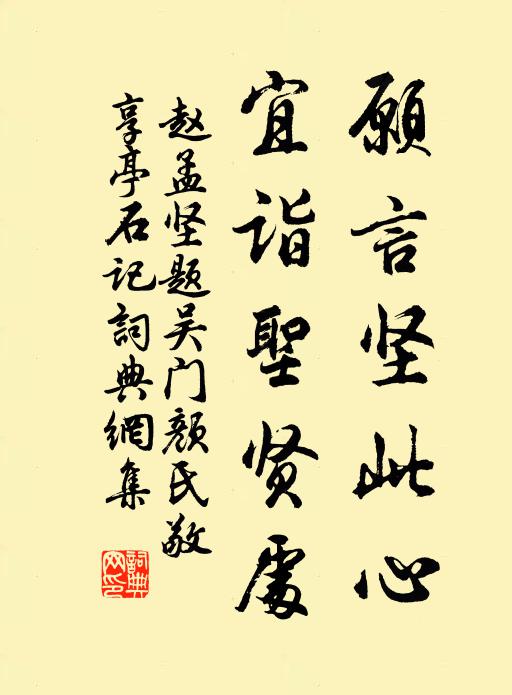 願言坚此心
宜诣聖贤處
赵孟坚题吴门颜氏敬
享亭石记詞典網集
詞典
网印